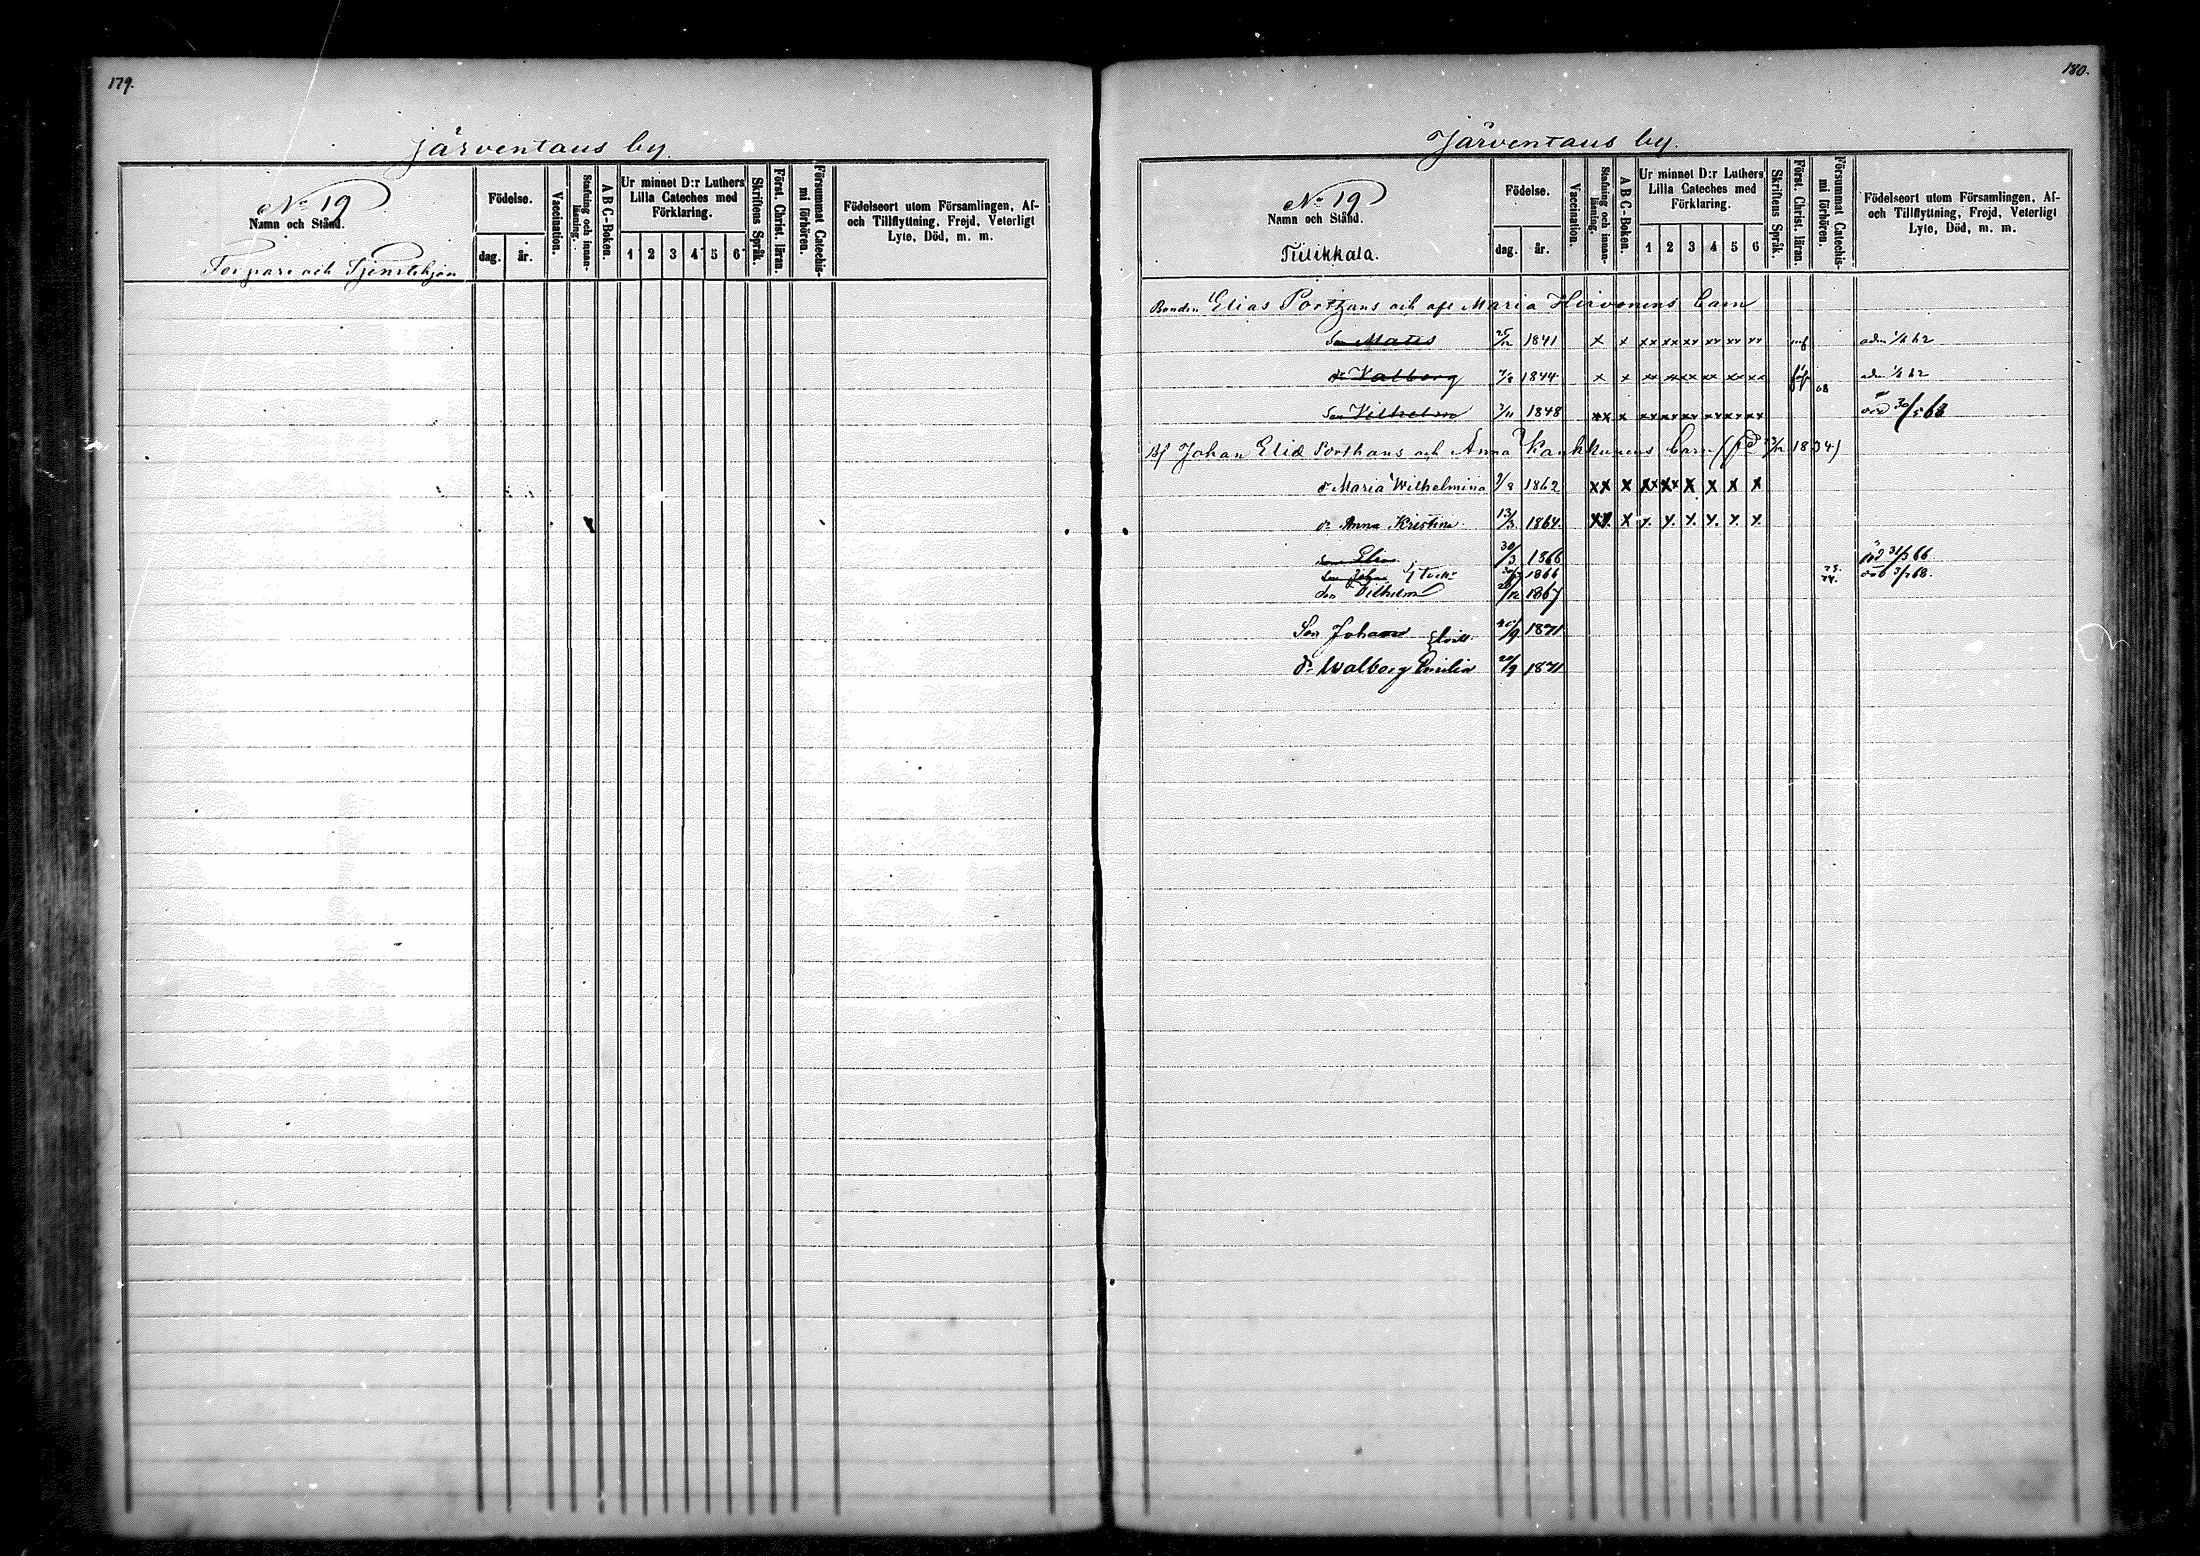 179.
Järventaus by
No 19
Namn och Stånd.
Födelse.
dag. år.
Vaccination.
Stafning och innan-läsning.
A B C-Boken.
Ur minnet D:r Luthers Lilla Cateches med Förklaring.
1 2 3 4 5 6
Skriftens Språk.
Först. Christ. läran.
Försummat Catechis-mi förhören.
Födelseort utom Församlingen, Af-
och Tillflyttning, Frejd, Veterligt
Lyte, Död, m. m.
Torpare och Tjenstehjon
180.
Järventaus by.
No 19
Namn och Stånd.
Tiilikkala.
Födelse.
dag. år.
Vaccination.
Stafning och innan-läsning.
A B C-Boken.
Ur minnet D:r Luthers Lilla Cateches med Förklaring.
1 2 3 4 5 6
Skriftens Språk.
Först. Christ. läran.
Försummat Catechis-mi förhören.
Födelseort utom Församlingen, Af-
och Tillflyttning, Frejd, Veterligt
Lyte, Död, m. m.
Bonden Elias Porthans och afl Maria Hirvonens barn
Son Mats 25/12 1841 x x xx xx xx xx xx xx adm 62
dr Valborg 1844 x x xx xx xx xx xx xx 68 adm 62
Son Vilhelm 1848 xx x xx xx xx xx xx xx död 30/5 68
Bf Johan Elid Porthans och Anna barn (föd 1834)
dr Maria Wilhelmina 1862 xx x xx xx x x x x
dr Anna Kristina 13/3 1864 xx x x x x x x x
Son Elias 30/3 1866 död 31/3 66
Son Johan 1866 död 68
Son Vilhelm 1867
Son Johan 1871
dr Walborg Emilia 1871